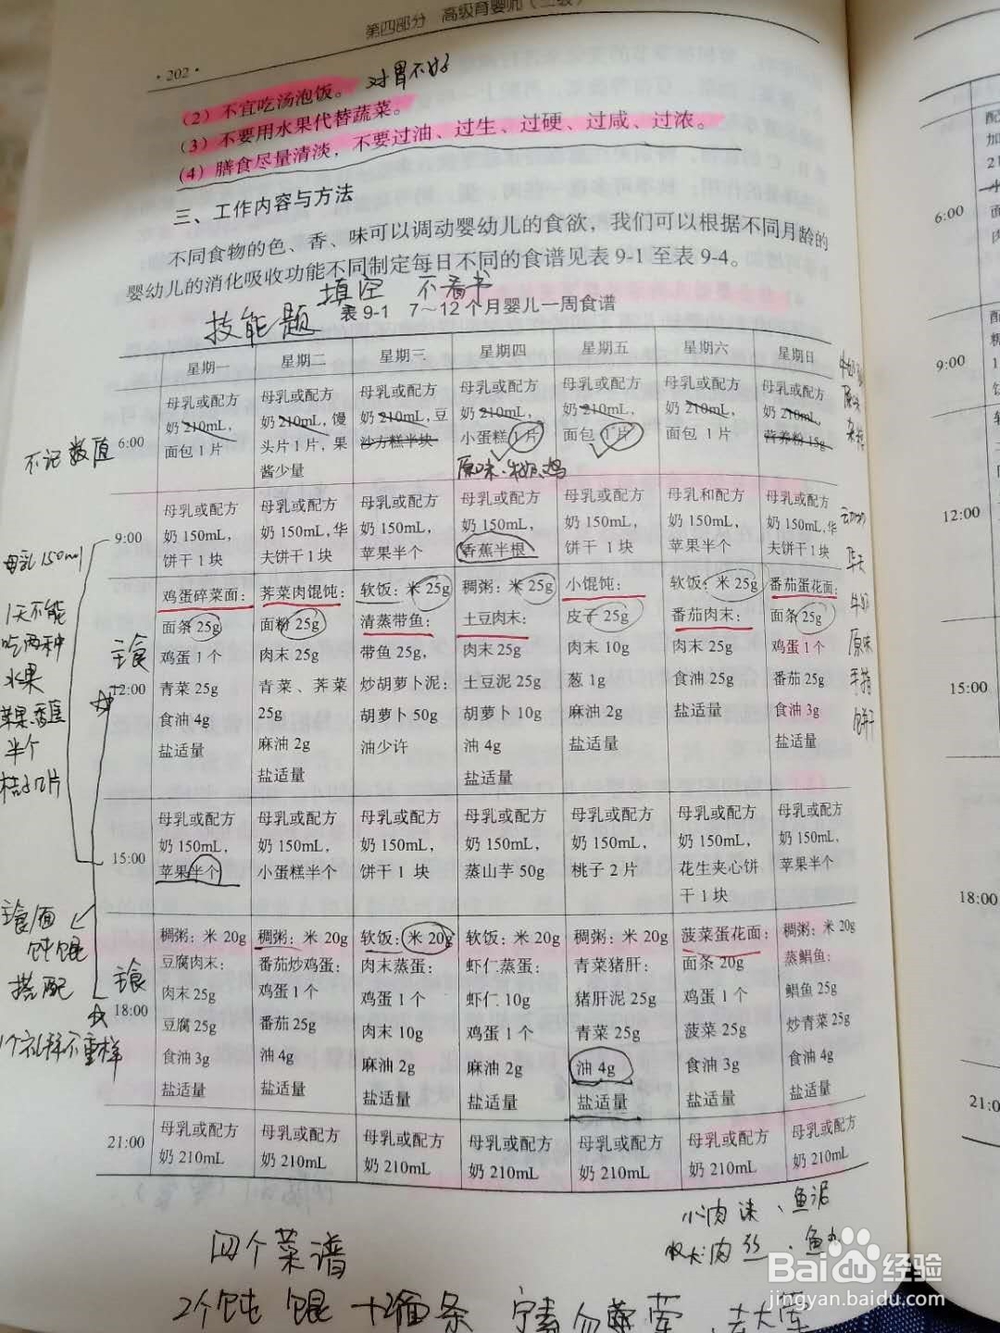 第四部分 高级育婴师（三级）
·202·
对胃不好
（2）不宜吃汤泡饭。
（3）不要用水果代替蔬菜。
（4）膳食尽量清淡，不要过油、过生、过硬、过咸、过浓。
三、工作内容与方法
不同食物的色、香、味可以调动婴幼儿的食欲，我们可以根据不同月龄的
婴幼儿的消化吸收功能不同制定每日不同的食谱见表9-1至表9-4。
填空 不看书
技能题
表9-1 7～12个月婴儿一周食谱
星期一 星期二 星期三 星期四 星期五 星期六 星期日
不记数值
6:00
母乳或配方奶210mL，面包1片
母乳或配方奶210mL，馒头片1片，果酱少量
母乳或配方奶210mL，豆沙方糕半块
母乳或配方奶210mL，小蛋糕1片
母乳或配方奶210mL，面包1片
母乳或配方奶210mL，面包1片
母乳或配方奶210mL，营养粉15g
9:00
母乳或配方奶150mL，饼干1块
母乳或配方奶150mL，华夫饼干1块
母乳或配方奶150mL，苹果半个
母乳或配方奶150mL，香蕉半根
母乳或配方奶150mL，饼干1块
母乳和配方奶150mL，苹果半个
母乳或配方奶150mL，华夫饼干1块
母乳150ml
1天不能
吃两种
水果
苹果香蕉
半个
桔子几片
主食
12:00
鸡蛋碎菜面：面条25g 鸡蛋1个 青菜25g 食油4g 盐适量
荠菜肉馄饨：面粉25g 肉末25g 青菜、荠菜25g 麻油2g 盐适量
软饭：米25g 清蒸带鱼：带鱼25g，炒胡萝卜泥：胡萝卜50g 油少许
稠粥：米25g 土豆肉末：肉末25g 土豆泥25g 胡萝卜10g 油4g 盐适量
小馄饨：皮子25g 肉末10g 葱1g 麻油2g 盐适量
软饭：米25g 番茄肉末：肉末25g 食油25g 盐适量
番茄蛋花面：面条25g 鸡蛋1个 番茄25g 食油3g 盐适量
原味
手指
饼干
15:00
母乳或配方奶150mL，苹果半个
母乳或配方奶150mL，小蛋糕半个
母乳或配方奶150mL，饼干1块
母乳或配方奶150mL，蒸山芋50g
母乳或配方奶150mL，桃子2片
母乳或配方奶150mL，花生夹心饼干1块
母乳或配方奶150mL，苹果半个
主食/面
馄饨
搭配
主食
18:00
稠粥：米20g 豆腐肉末：肉末25g 豆腐25g 食油3g 盐适量
稠粥：米20g 番茄炒鸡蛋：鸡蛋1个 番茄25g 油4g 盐适量
软饭：米20g 肉末蒸蛋：鸡蛋1个 肉末10g 麻油2g 盐适量
软饭：米20g 虾仁蒸蛋：虾仁10g 鸡蛋1个 麻油2g 盐适量
稠粥：米20g 青菜猪肝：猪肝泥25g 青菜25g 油4g 盐适量
菠菜蛋花面：面条20g 鸡蛋1个 菠菜25g 食油3g 盐适量
稠粥：米20g 蒸鲳鱼：鲳鱼25g 炒青菜25g 食油4g 盐适量
21:00
母乳或配方奶210mL
母乳或配方奶210mL
母乳或配方奶210mL
母乳或配方奶210mL
母乳或配方奶210mL
母乳或配方奶210mL
母乳或配方奶210mL
小肉沫、鱼泥
四个菜谱
2个馄饨 +2个面条
6:00
9:00
12:00
15:00
18:00
21:0
Baidu百科经验
jingyan.baidu.com